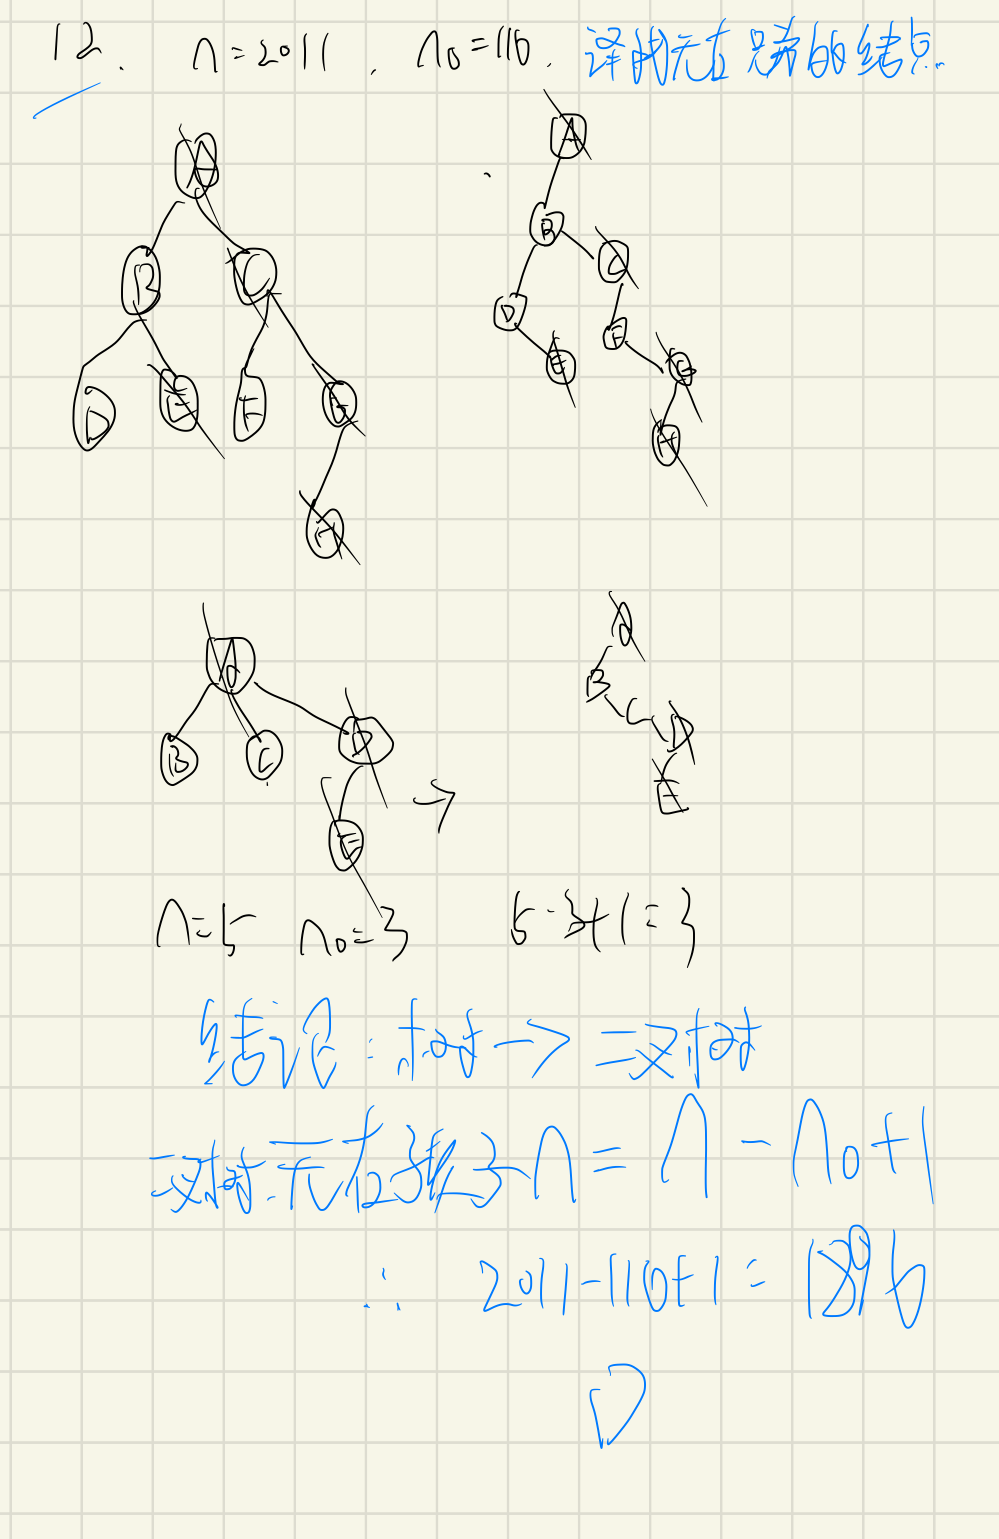 12. n=2011, n0=116. 译成无右兄弟的结点
A A
B C B C
D E F G D E F G
H H
A A
B C D B C D
E → E
n=5 n0=3 5-3+1=3
结论:树→二叉树
二叉树无右孩子n=n-n0+1
∴ 2011-116+1=1896
D